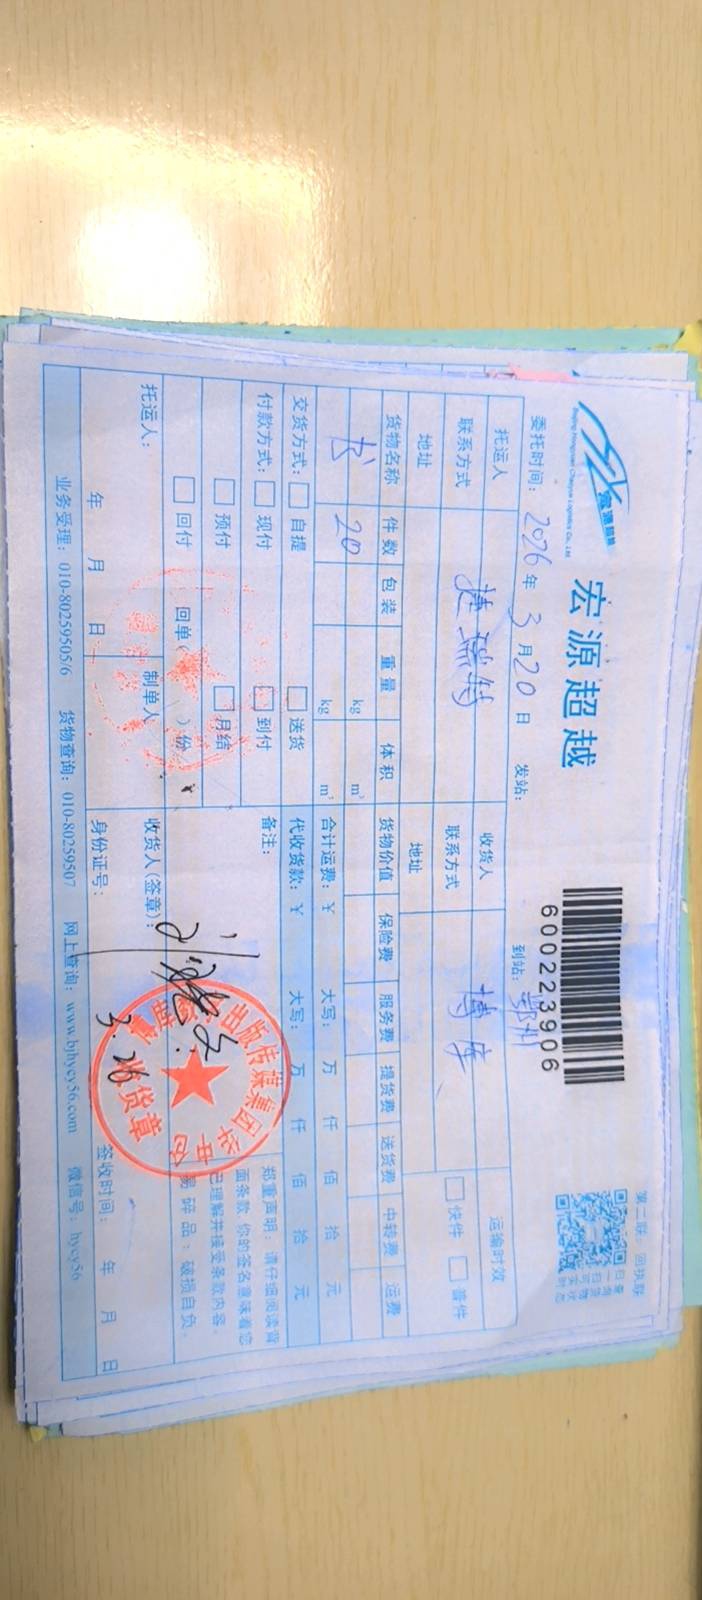 宏源超越
宏源超越
Beijing Hongyuan Chaoyue Logistics Co., Ltd.
600223906
第二联：回执联
委托时间：2026年3月20日 发站： 到站：鄂州
托运人 捷瑞特 收货人 博库 运输时效
联系方式 联系方式 快件 普件
地址 地址
货物名称 件数 包装 重量 体积 货物价值 保险费 服务费 提货费 送货费 中转费 运费
书 20 kg m³
kg m³ 合计运费：￥ 大写： 万 仟 佰 拾 元
交货方式： 自提 送货 代收货款：￥ 大写： 万 仟 佰 拾 元
付款方式： 现付 到付 备注：
预付 月结
回付 回单( )份
郑重声明：请仔细阅读背
面条款 你的签名意味着您
已理解并接受条款内容。
易碎品：破损自负。
托运人： 制单人 收货人(签章)：
年 月 日 身份证号： 3.26 签收时间： 年 月 日
出版传媒集团
收货章
业务受理：010-80259505/6 货物查询：010-80259507 网上查询：www.bjhycy56.com 微信号：hycy56